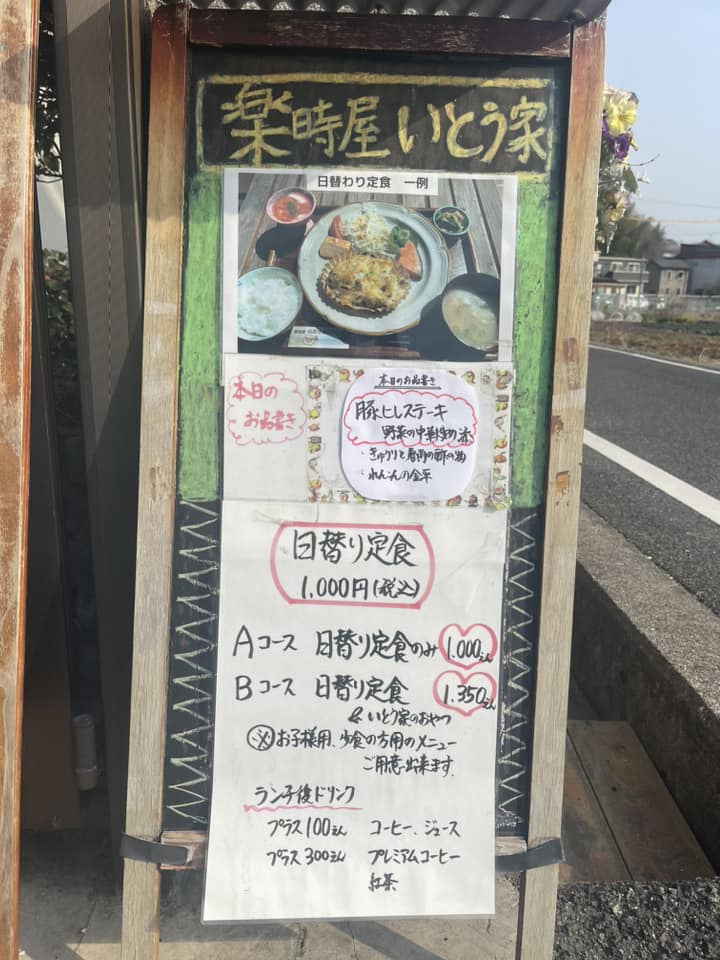 楽時屋 いとう家
日替わり定食 一例
本日の
お品書き
本日のお品書き
豚ヒレステーキ
野菜の中華炒め添
・きゅうりと春雨の酢の物
・れんこんの金平
日替り定食
1,000円(税込)
Aコース 日替り定食のみ 1.000えん
Bコース 日替り定食 1.350えん
& いとう家のおやつ
※お子様用、少食の方用のメニュー
ご用意出来ます。
ランチ後ドリンク
プラス100えん コーヒー、ジュース
プラス300えん プレミアムコーヒー
紅茶